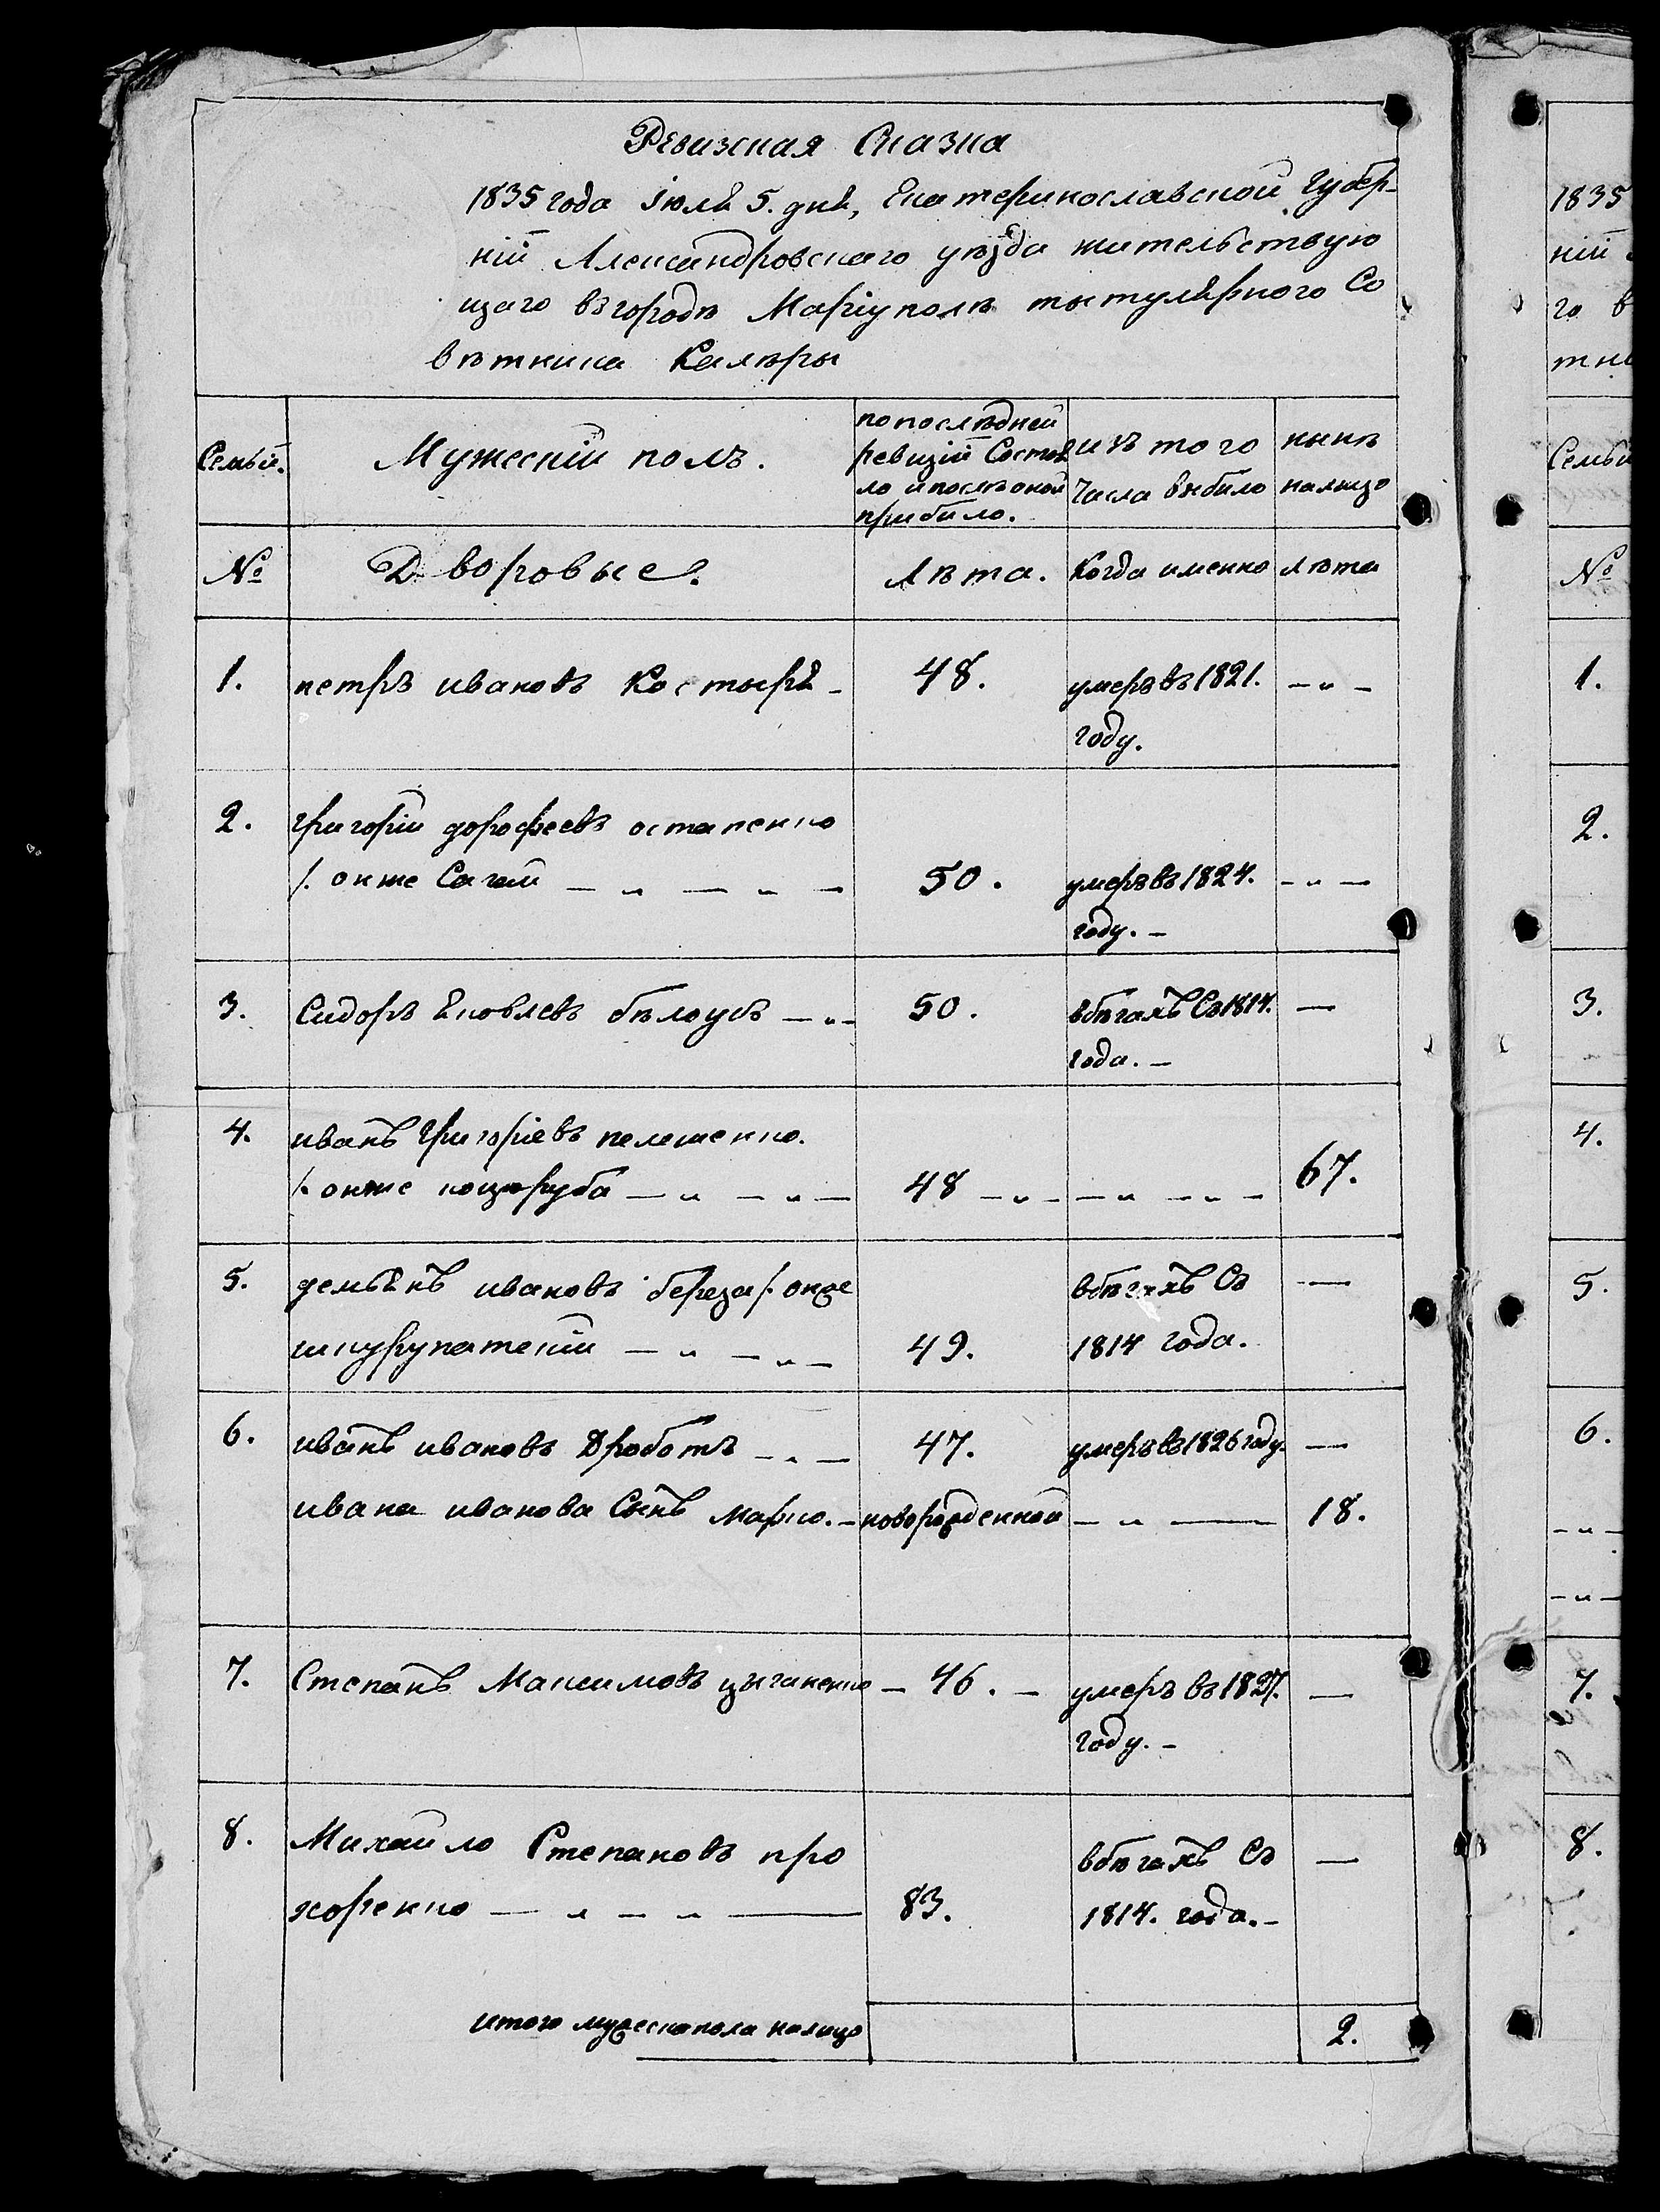 Ревизская Сказка
1835 года Іюля 5. дня, Екатеринославской Губер-
ніи Александровскаго уѣзда жительствую
щаго въ городѣ Маріуполѣ тытулярного Со
вѣтника Калѣры
Семьи. Мужескій полъ. по послѣдней ревизіи Состоя ло и послѣ оной прибило. изъ того числа выбило нынѣ налицо
№ Дворовые. Лѣта. Когда именно лѣта
1. петръ ивановъ Костыря - 48. умеръ въ 1821. - „ -
году.
2. григорій дорофеевъ остапенко
/. онже Сагай — „ — „ — 50. умеръ въ 1824. - „ —
году. -
3. Сидоръ Яковлевъ бѣлоусъ — „ - 50. вбѣгахъ Съ 1814. —
года. -
4. иванъ Григоріевъ пелешенко.
/. онже коцюруба — „ — „ — 48 — „ - — „ — „ - 67.
5. демьянъ ивановъ береза /. онже вбѣгахъ Съ —
шкурупатскій — „ — „ — 49. 1814 года.
6. иванъ ивановъ Дроботъ - „ — 47. умеръ въ 1826 году. —
ивана иванова Сынъ марко. - новорожденной — „ —— 18.
7. Степанъ Максимовъ цыганенко — 46. — умеръ въ 1827. —
году. -
8. Михайло Степановъ про вбѣгахъ Съ —
хоренко — „ — „ —— 83. 1814. года. -
итого мужеска пола налицо 2.
1835
ніи
го в
тни
Семьи
№
1.
2.
3.
4.
5.
6.
- „ -
- „ -
7.
8.